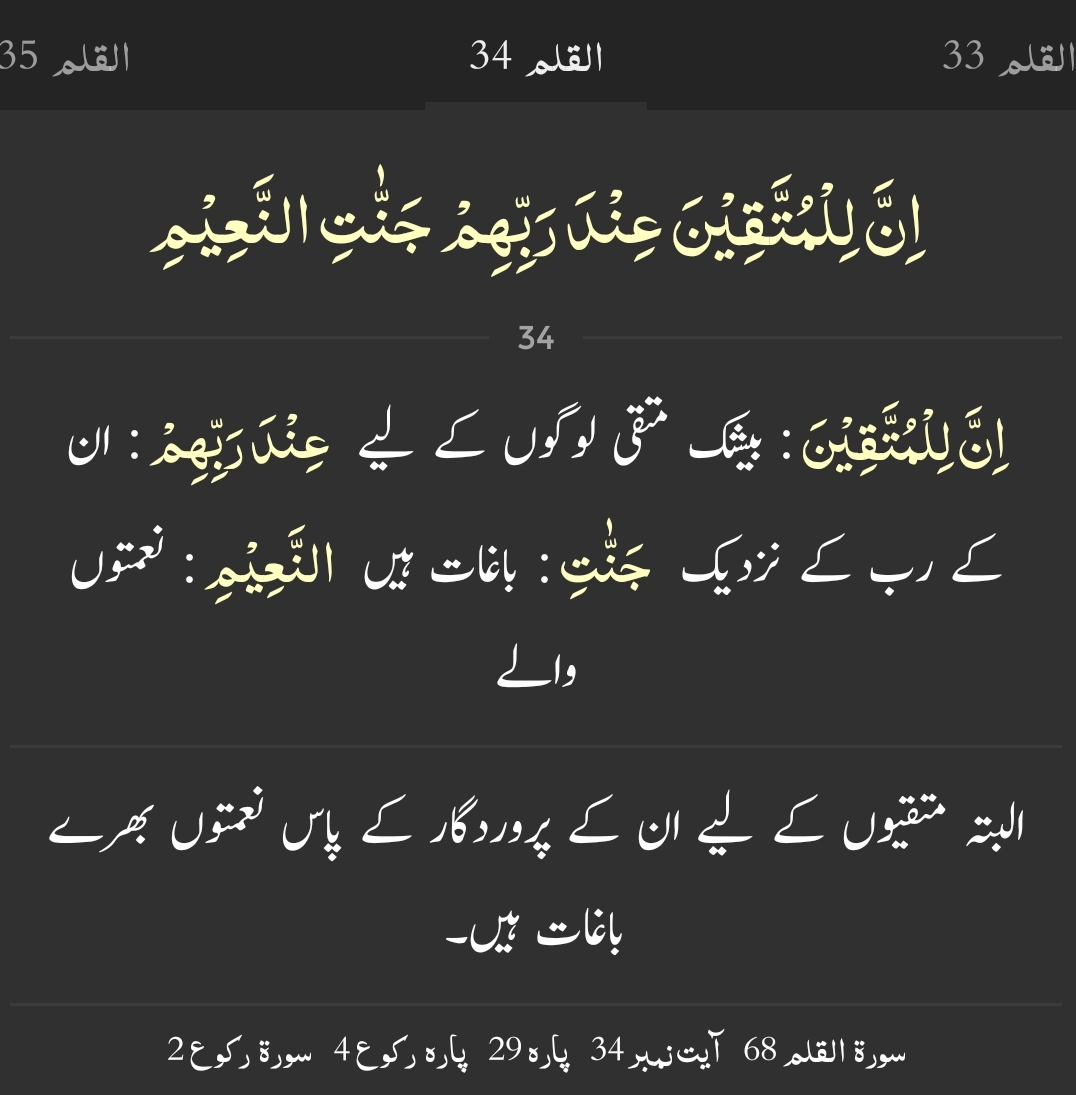 القلم 33 القلم 34 القلم 35
اِنَّ لِلۡمُتَّقِيۡنَ عِنۡدَ رَبِّهِمۡ جَنّٰتِ النَّعِيۡمِ
34
اِنَّ لِلۡمُتَّقِيۡنَ : بیشک متقی لوگوں کے لیے عِنۡدَ رَبِّهِمۡ : ان
کے رب کے نزدیک جَنّٰتِ : باغات ہیں النَّعِيۡمِ : نعمتوں
والے
البتہ متقیوں کے لیے ان کے پروردگار کے پاس نعمتوں بھرے
باغات ہیں۔
سورۃ القلم 68 آیت نمبر 34 پارہ 29 پارہ رکوع 4 سورۃ رکوع 2